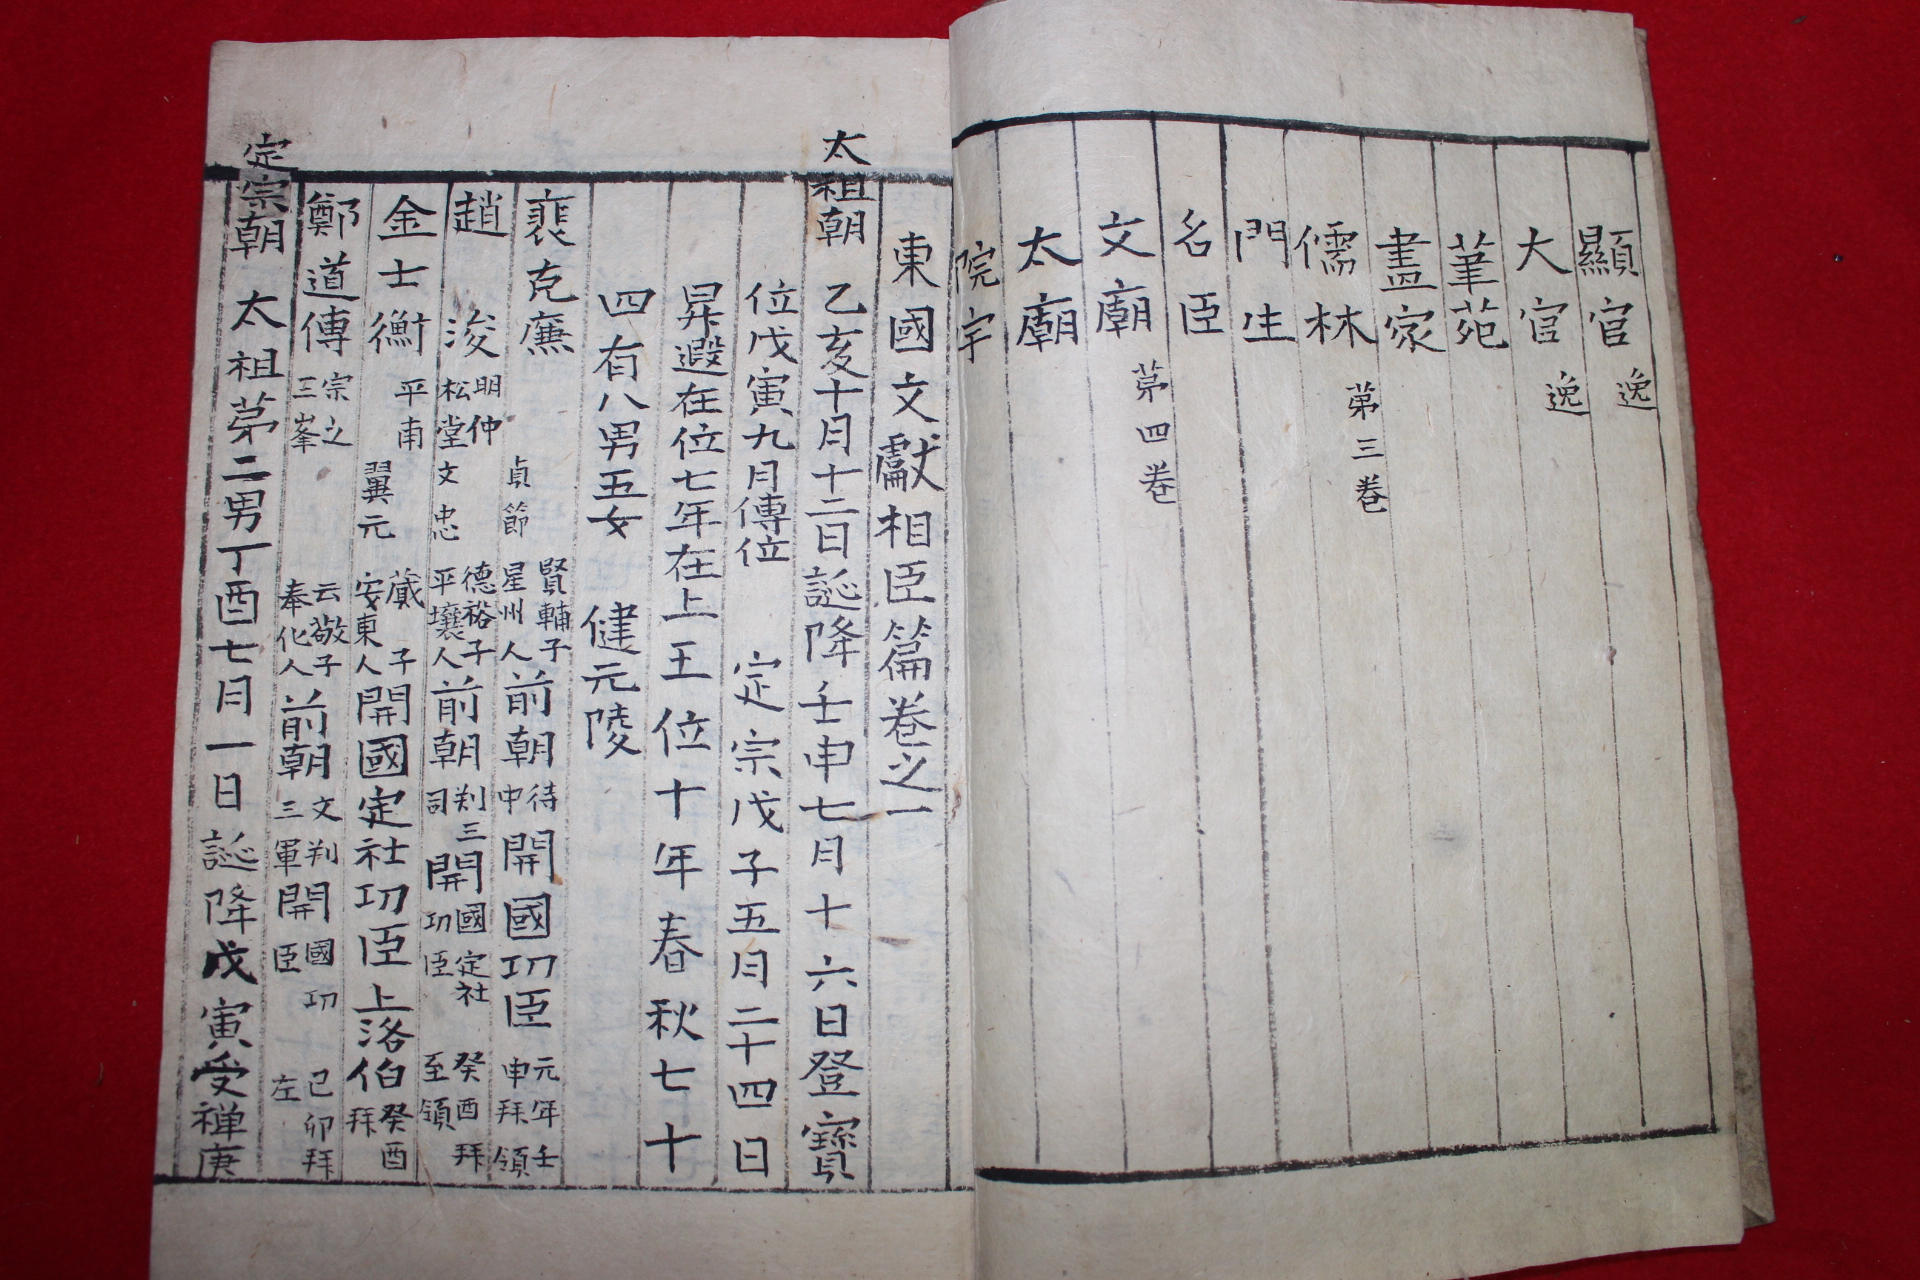 顯官 逸
大官 逸
筆苑
畫家
儒林 第三卷
門生
名臣
文廟 第四卷
太廟
院宇
東國文獻相臣篇卷之一
太祖朝 乙亥十月十二日誕降壬申七月十六日登寶
位戊寅九月傳位 定宗戊子五月二十四日
昇遐在位七年在上王位十年春秋七十
四有八男五女 健元陵
裵克廉 貞節 賢輔子 星州人 前朝 待中 開國功臣 元年壬申拜領
趙浚 明仲 松堂 文忠 德裕子 平壤人 前朝 判三司 開國定社功臣 癸酉拜至領
金士衡 平甫 翼元 蕆子 安東人 開國定社功臣上洛伯 癸酉拜
鄭道傳 宗之 三峯 云敬子 奉化人 前朝 文判三軍 開國功臣 己卯拜左
定宗朝 太祖苐二男丁酉七月一日誕降戊寅受禪庚